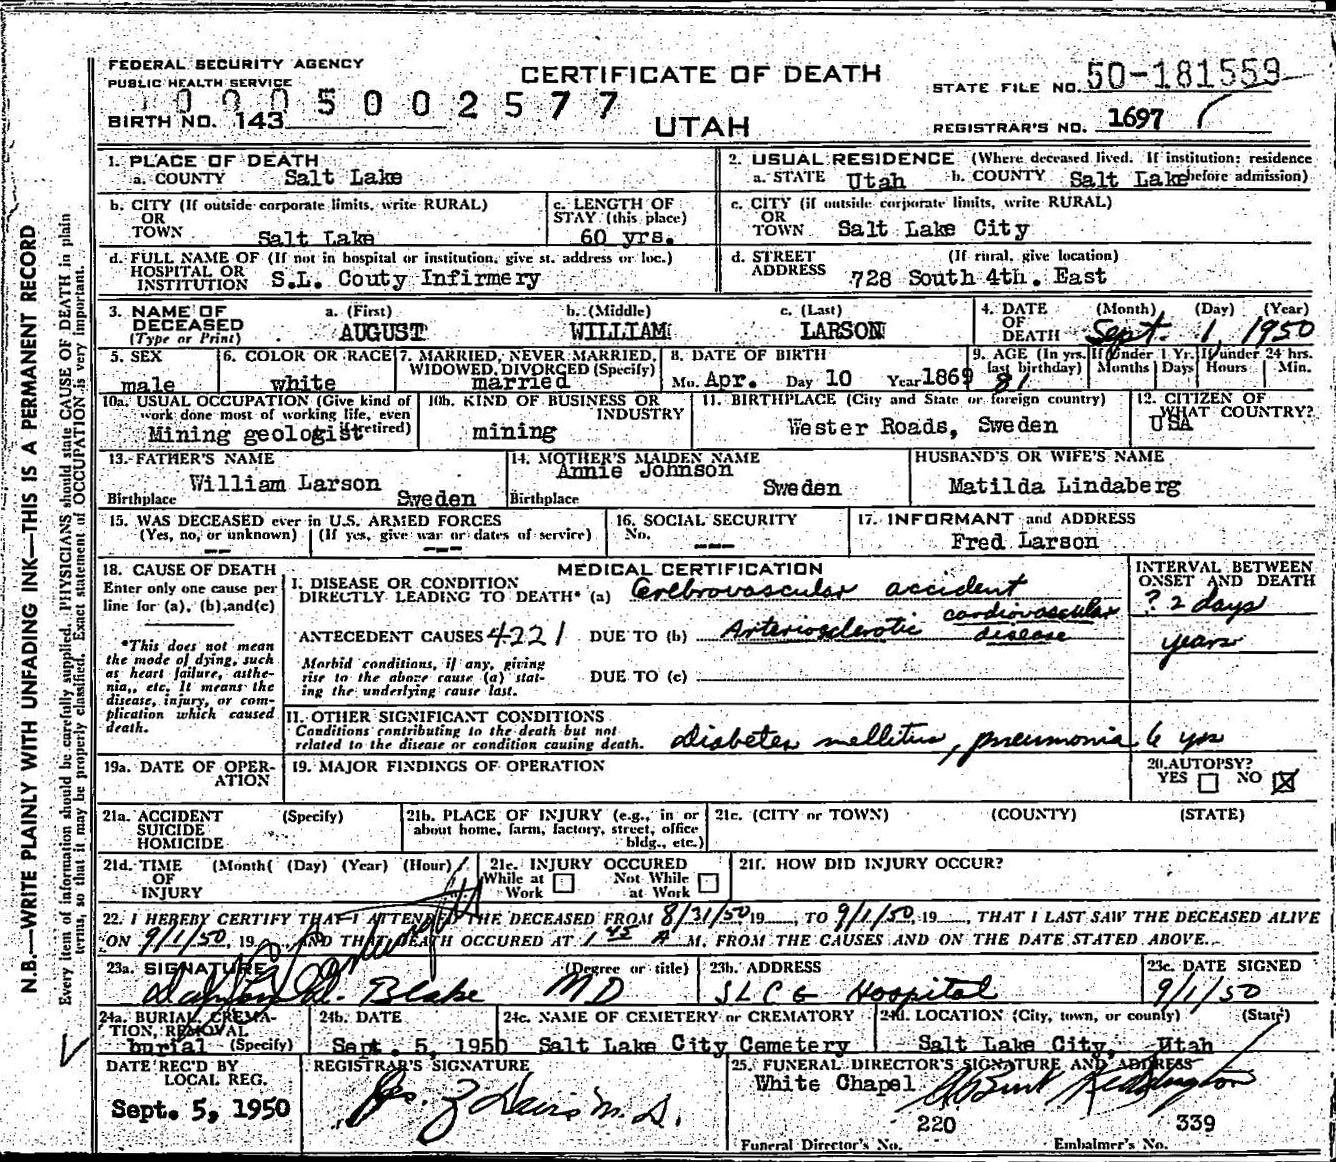 FEDERAL SECURITY AGENCY
PUBLIC HEALTH SERVICE
CERTIFICATE OF DEATH
STATE FILE NO. 50-181559
0005002577
BIRTH NO. 143
UTAH
REGISTRAR'S NO. 1697
1. PLACE OF DEATH
a. COUNTY Salt Lake
2. USUAL RESIDENCE (Where deceased lived. If institution: residence before admission)
a. STATE Utah b. COUNTY Salt Lake
b. CITY (If outside corporate limits, write RURAL)
OR
TOWN Salt Lake
c. LENGTH OF
STAY (this place)
60 yrs.
c. CITY (if outside corporate limits, write RURAL)
OR
TOWN Salt Lake City
d. FULL NAME OF (If not in hospital or institution, give st. address or loc.)
HOSPITAL OR
INSTITUTION S.L. Couty Infirmery
d. STREET (If rural, give location)
ADDRESS 728 South 4th. East
3. NAME OF
DECEASED
(Type or Print)
a. (First) b. (Middle) c. (Last)
AUGUST WILLIAM LARSON
4. DATE (Month) (Day) (Year)
OF
DEATH Sept. 1, 1950
5. SEX
male
6. COLOR OR RACE
white
7. MARRIED, NEVER MARRIED,
WIDOWED, DIVORCED (Specify)
married
8. DATE OF BIRTH
Mo. Apr. Day 10 Year 1869
9. AGE (In yrs. last birthday)
81
If Under 1 Yr.
Months Days
If under 24 hrs.
Hours Min.
10a. USUAL OCCUPATION (Give kind of
work done most of working life, even
if retired)
Mining geologist
10b. KIND OF BUSINESS OR
INDUSTRY
mining
11. BIRTHPLACE (City and State or foreign country)
Wester Roads, Sweden
12. CITIZEN OF
WHAT COUNTRY?
USA
13. FATHER'S NAME
William Larson
Birthplace Sweden
14. MOTHER'S MAIDEN NAME
Annie Johnson
Birthplace Sweden
HUSBAND'S OR WIFE'S NAME
Matilda Lindaberg
15. WAS DECEASED ever in U.S. ARMED FORCES
(Yes, no, or unknown) (If yes, give war or dates of service)
-- ---
16. SOCIAL SECURITY
No. ---
17. INFORMANT and ADDRESS
Fred Larson
18. CAUSE OF DEATH
Enter only one cause per
line for (a), (b), and (c)
*This does not mean
the mode of dying, such
as heart failure, asthe-
nia,, etc. It means the
disease, injury, or com-
plication which caused
death.
MEDICAL CERTIFICATION
INTERVAL BETWEEN
ONSET AND DEATH
I. DISEASE OR CONDITION
DIRECTLY LEADING TO DEATH* (a) Cerebrovascular accident
? 2 days
ANTECEDENT CAUSES 4221 DUE TO (b) Arteriosclerotic cardiovascular disease
years
Morbid conditions, if any, giving
rise to the above cause (a) stat-
ing the underlying cause last.
DUE TO (c)
II. OTHER SIGNIFICANT CONDITIONS
Conditions contributing to the death but not
related to the disease or condition causing death.
diabetes mellitus, pneumonia 6 yrs
19a. DATE OF OPER-
ATION
19. MAJOR FINDINGS OF OPERATION
20. AUTOPSY?
YES NO
21a. ACCIDENT (Specify)
SUICIDE
HOMICIDE
21b. PLACE OF INJURY (e.g., in or
about home, farm, factory, street, office
bldg., etc.)
21c. (CITY or TOWN) (COUNTY) (STATE)
21d. TIME (Month) (Day) (Year) (Hour)
OF
INJURY
21e. INJURY OCCURED
While at Work Not While at Work
21f. HOW DID INJURY OCCUR?
22. I HEREBY CERTIFY THAT I ATTENDED THE DECEASED FROM 8/31/50, 19__, TO 9/1/50, 19__, THAT I LAST SAW THE DECEASED ALIVE
ON 9/1/50, 19__ AND THAT DEATH OCCURED AT 1 45 A M. FROM THE CAUSES AND ON THE DATE STATED ABOVE.
23a. SIGNATURE (Degree or title)
Blake MD
23b. ADDRESS
SLCG Hospital
23c. DATE SIGNED
9/1/50
24a. BURIAL, CREMA-
TION, REMOVAL
burial (Specify)
24b. DATE
Sept. 5, 1950
24c. NAME OF CEMETERY or CREMATORY
Salt Lake City Cemetery
24d. LOCATION (City, town, or county) (State)
Salt Lake City, Utah
DATE REC'D BY
LOCAL REG.
Sept. 5, 1950
REGISTRAR'S SIGNATURE
Davis M.D.
25. FUNERAL DIRECTOR'S SIGNATURE AND ADDRESS
White Chapel
220 339
Funeral Director's No. Embalmer's No.
N.B.—WRITE PLAINLY WITH UNFADING INK—THIS IS A PERMANENT RECORD
Every item of information should be carefully supplied. PHYSICIANS should state CAUSE OF DEATH in plain
terms, so that it may be properly classified. Exact statement of OCCUPATION is very important.